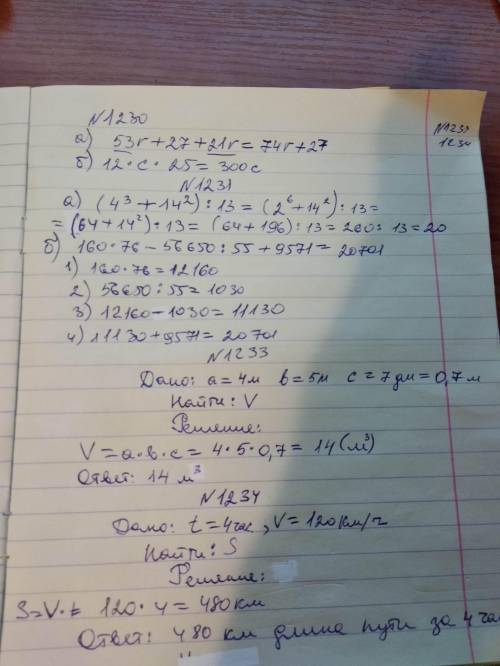 N1230
а) 53r+27+21r=74r+27
N1237
1234
б) 12·c·25=300c
N1231
а) (4³+14²):13=(2⁶+14²):13=
=(64+14²):13=(64+196):13=260:13=20
б) 160·76-56650:55+9571=20701
1) 160·76=12160
2) 56650:55=1030
3) 12160-1030=11130
4) 11130+9571=20701
N1233
Дано: a=4м b=5м c=7дм=0,7м
Найти: V
Решение:
V=a·b·c=4·5·0,7=14(м³)
Ответ: 14 м³
N1234
Дано: t=4час, V=120км/г
Найти: S
Решение:
S=V·t= 120·4=480км
Ответ: 480 км длина пути за 4 час